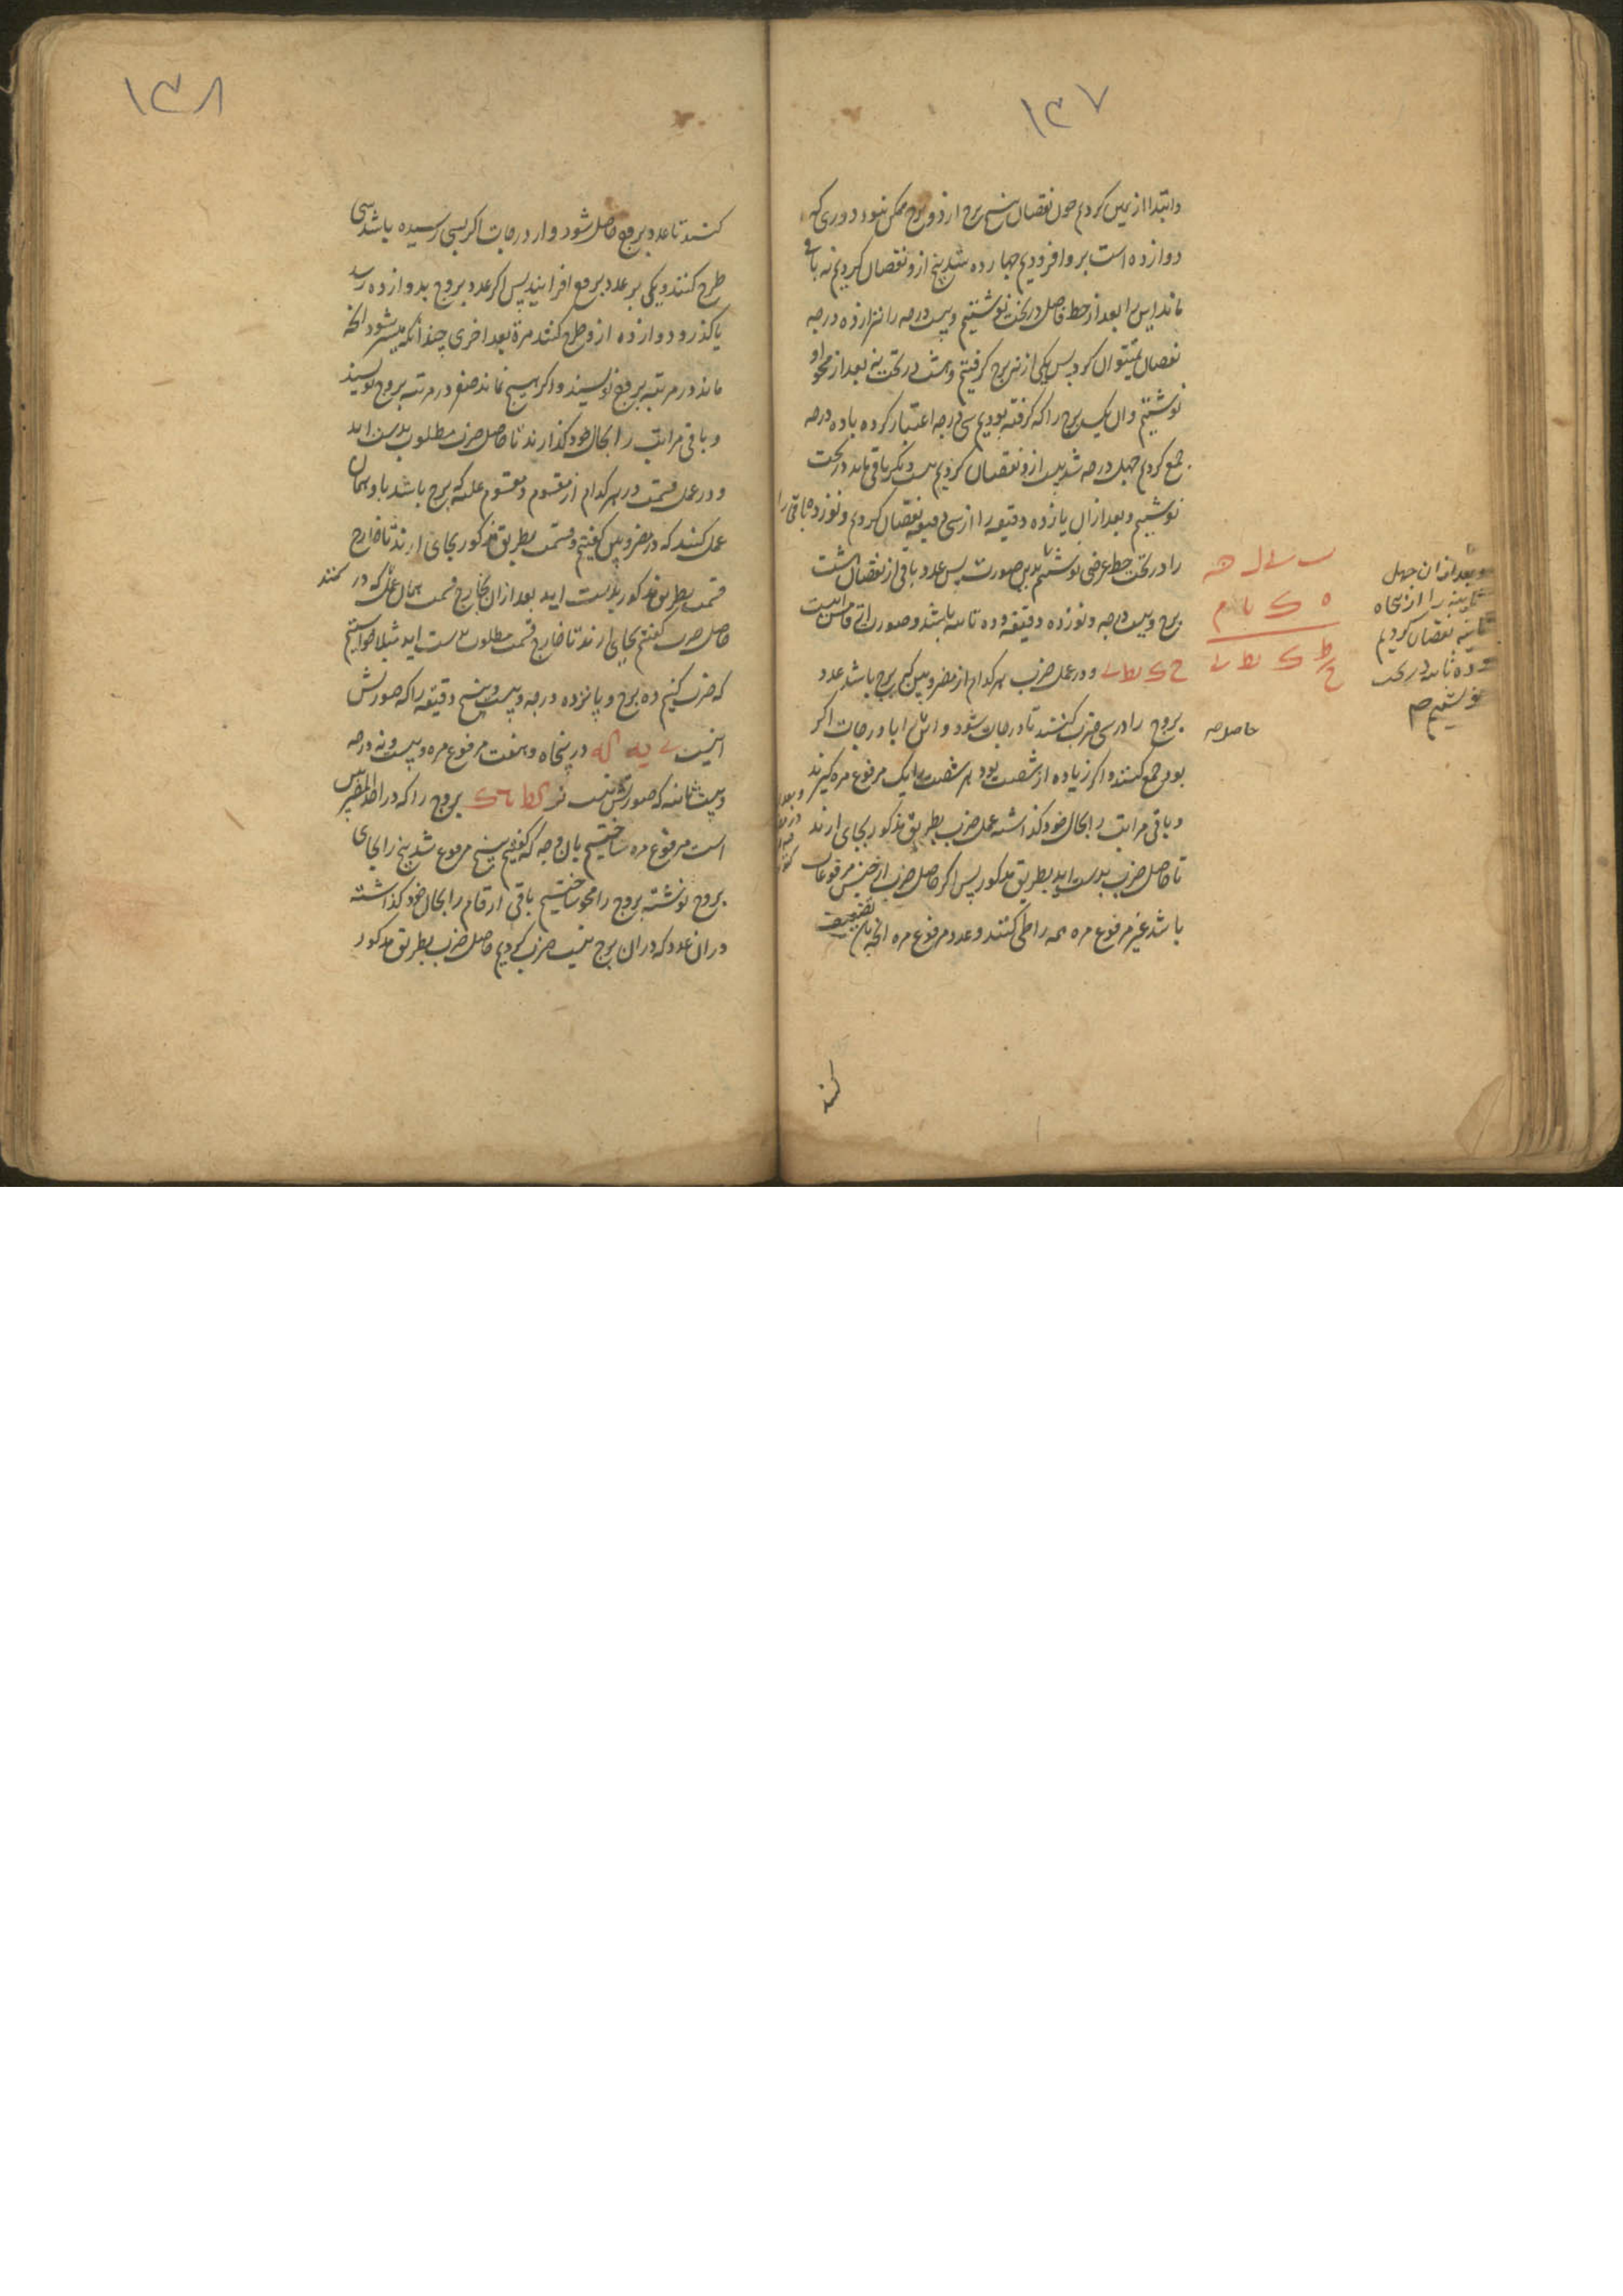 ۱۳۷
وابتدا از یمین کردیم چون نقصان پنج برج از دو برج ممکن نبود دوری که
دوازده است برو افزودیم چهارده شد پنج ازو نقصان کردیم نه باقی
ماند این را بعد از خط فاصل در تحت نوشتیم و بیست درجه را نیز از ده درجه
نقصان نمیتوان کرد پس یکی از نه برج گرفتیم و هشت در تحت نه بعد از محو او
نوشتیم وان یک برج را که گرفته بودیم سی درجه اعتبار کرده با ده درجه
جمع کردیم چهل درجه شد بیست ازو نقصان کردیم بیست دیگر باقی ماند در تحت
نوشتیم و بعد ازان یازده دقیقه را از سی دقیقه نقصان کردیم و نوزده باقی را
را در تحت خط عرضی نوشتیم بدین صورت پس عدد باقی از نقصان هشت
برج و بیست درجه و نوزده دقیقه و ده ثانیه باشد و صورت این
ح ک یط ی و در عمل ضرب هر کدام از مضروبین که برج باشد عدد
بروج را در سی ضرب کنند تا درجات شود و انرا با درجات اگر
بود جمع کنند و اگر زیاده از شصت بود هر شصت را یک مرفوع مره گیرند
و باقی مراتب را بحال خود گذاشته عمل ضرب بطریق مذکور بجای ارند
تا حاصل ضرب بدست اید بطریق مذکور پس اگر حاصل ضرب از جنس مرفوعات
باشد غیر مرفوع مره همه را طی کنند و عدد مرفوع مره انچه باشد تضعیف
کنند
ب ی ل نه
ه ک یا م
ط ح ک یط ی
و بعد ازان چهل
ثانیه را از پنجاه
ثانیه نقصان کردیم
ده ماند در تحت
نوشتیم صح
۱۳۸
کنند تا عدد بروج حاصل شود و از درجات اگر بسی رسیده باشد سی
طرح کنند و یکی بر عدد بروج افزایند پس اگر عدد بروج بدوازده رسد
یا گذرد دوازده ازو طرح کنند مرة بعد اخری چندانکه میسر شود انچه
ماند در مرتبه بروج نویسند و اگر هیچ نماند صفر در مرتبه بروج نویسند
و باقی مراتب را بحال خود گذارند تا حاصل ضرب مطلوب بدست اید
و در عمل قسمت در هر کدام از مقسوم و مقسوم علیه که برج باشد با و همان
عمل کنند که در مضروبین گفتیم و قسمت بطریق مذکور بجای ارند تا خارج
قسمت بطریق مذکور بدست اید بعد ازان بخارج قسمت همان عمل که در
حاصل ضرب گفتیم بجای ارند تا خارج قسمت مطلوب بدست اید مثلا خواستیم
که ضرب کنیم ده برج و پانزده درجه و بیست و پنج دقیقه را که صورتش
اینست ی یه که در پنجاه و هفت مرفوع مره و بیست و نه درجه
و بیست ثانیه که صورتش اینست نز کط ک بروج را که در احد المضروبین
است مرفوع مره ساختیم بان وجه که گفتیم پنج مرفوع شد پنج را بجای
بروج نوشته بروج را محو ساختیم باقی ارقام را بحال خود گذاشته
در ان عدد که در ان برج نیست ضرب کردیم حاصل ضرب بطریق مذکور